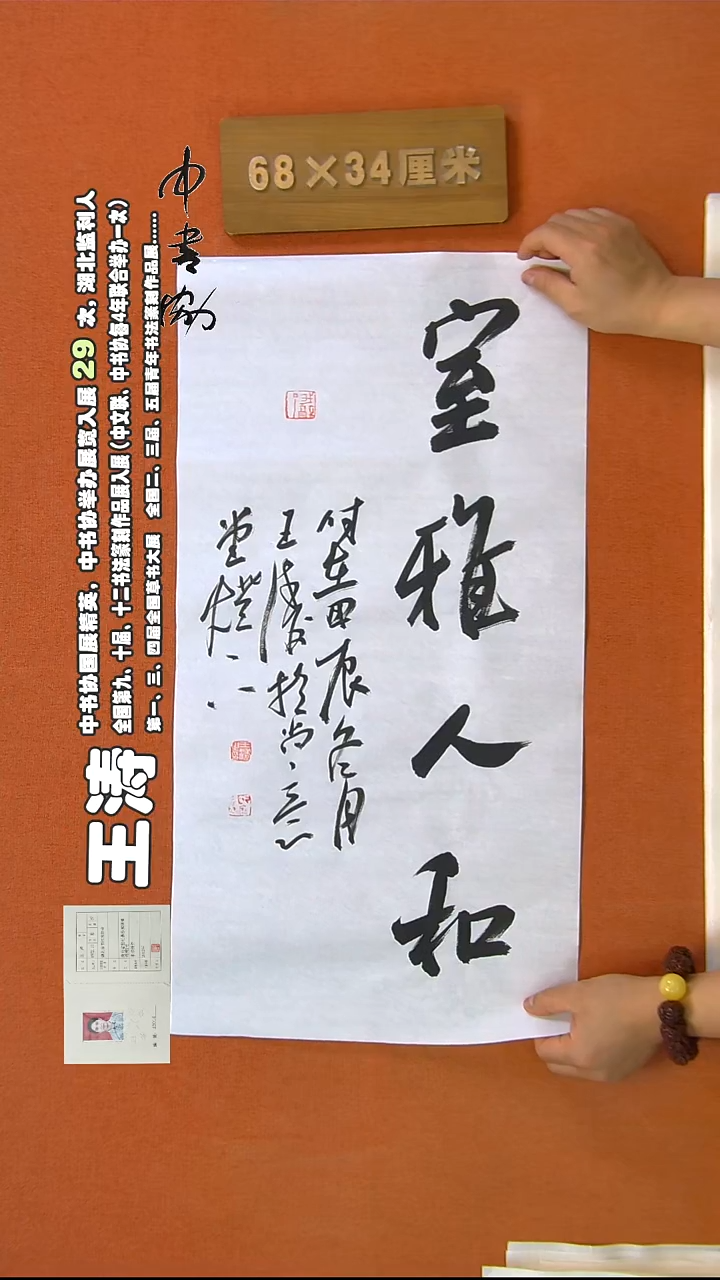 68×34厘米
中书协
室雅人和
时在甲辰冬月
王涛于尚
王涛
中书协国展精英，中书协举办展览入展29次，湖北监利人
全国第九、十届、十二书法篆刻作品展入展（中文联、中书协每4年联合举办一次）
第一、三、四届全国草书大展 全国二、三届、五届青年书法篆刻作品展......